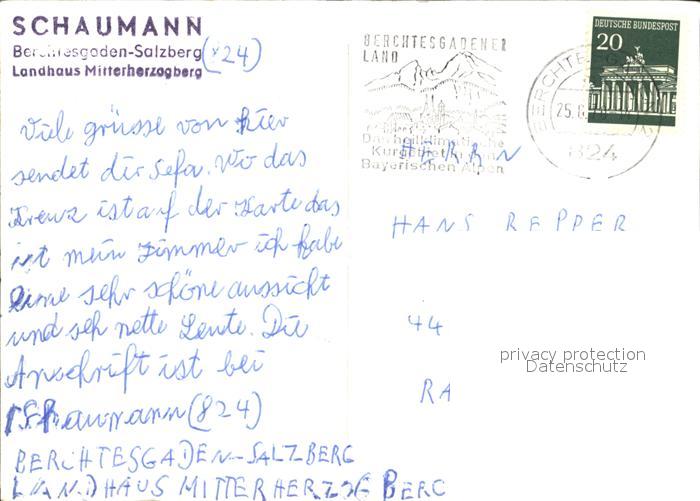 SCHAUMANN
Berchtesgaden-Salzberg (824)
Landhaus Mitterherzogberg
Viele grüsse von hier
sendet dir Sefa. Wo das
Kreuz ist auf der Karte das
ist mein Zimmer ich habe
eine sehr schöne aussicht
und seh nette Leute. Die
Anschrift ist bei
Schaumann (824)
BERCHTESGADEN-SALZBERG
LANDHAUS MITTERHERZOGBERG
BERCHTESGADENER
LAND
Das heilklimatische
Kurgebiet in den
Bayerischen Alpen
DEUTSCHE BUNDESPOST
20
824
HERRN
HANS REPPER
44
privacy protection
Datenschutz
RA